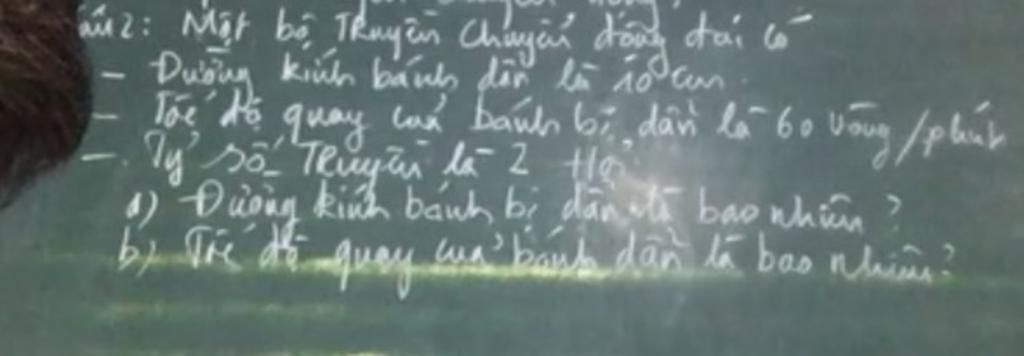 Câu 2: Một bộ Truyền chuyển động đai có
- Đường kính bánh dẫn là 10 cm.
- Tốc độ quay của bánh bị dẫn là 60 vòng/phút
-. Tỷ số Truyền là 2 Hỏi
a) Đường kính bánh bị dẫn là bao nhiêu?
b) Tốc độ quay của bánh dẫn là bao nhiêu?